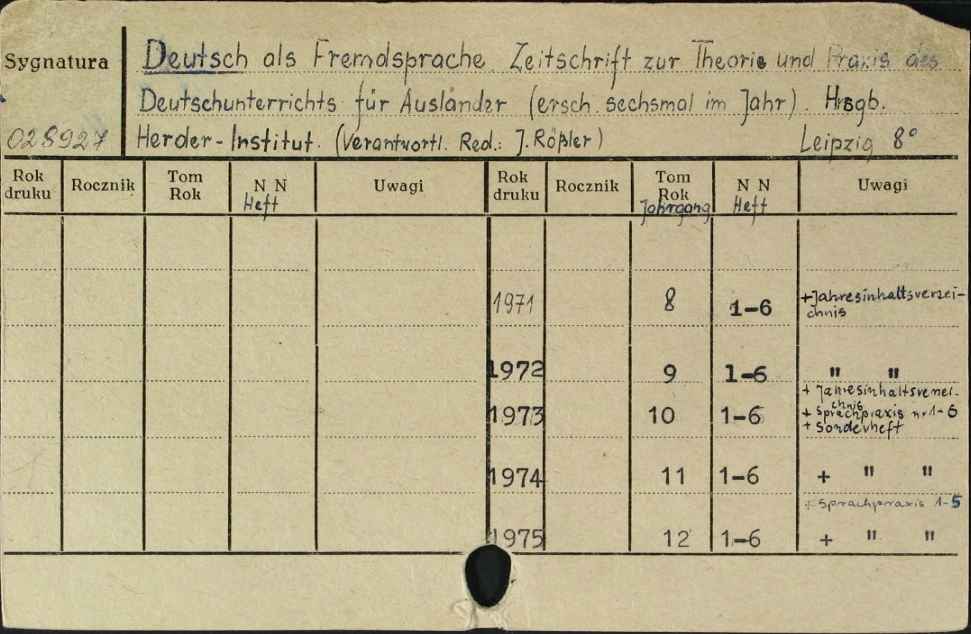 Sygnatura
Deutsch als Fremdsprache. Zeitschrift zur Theorie und Praxis des
Deutschunterrichts für Ausländer (ersch. sechsmal im Jahr). Hrsgb.
028927
Herder-Institut. (Verantwortl. Red.: J. Rößler) Leipzig 8°
Rok druku Rocznik Tom Rok N N Heft Uwagi Rok druku Rocznik Tom Rok Jahrgang N N Heft Uwagi
1971 8 1-6 +Jahresinhaltsverzei-
chnis
1972 9 1-6 " "
+ Jahresinhaltsverzei-
chnis
1973 10 1-6 + Sprachpraxis nr 1-6
+ Sonderheft
1974 11 1-6 + " "
+ Sprachpraxis 1-5
1975 12 1-6 + " "